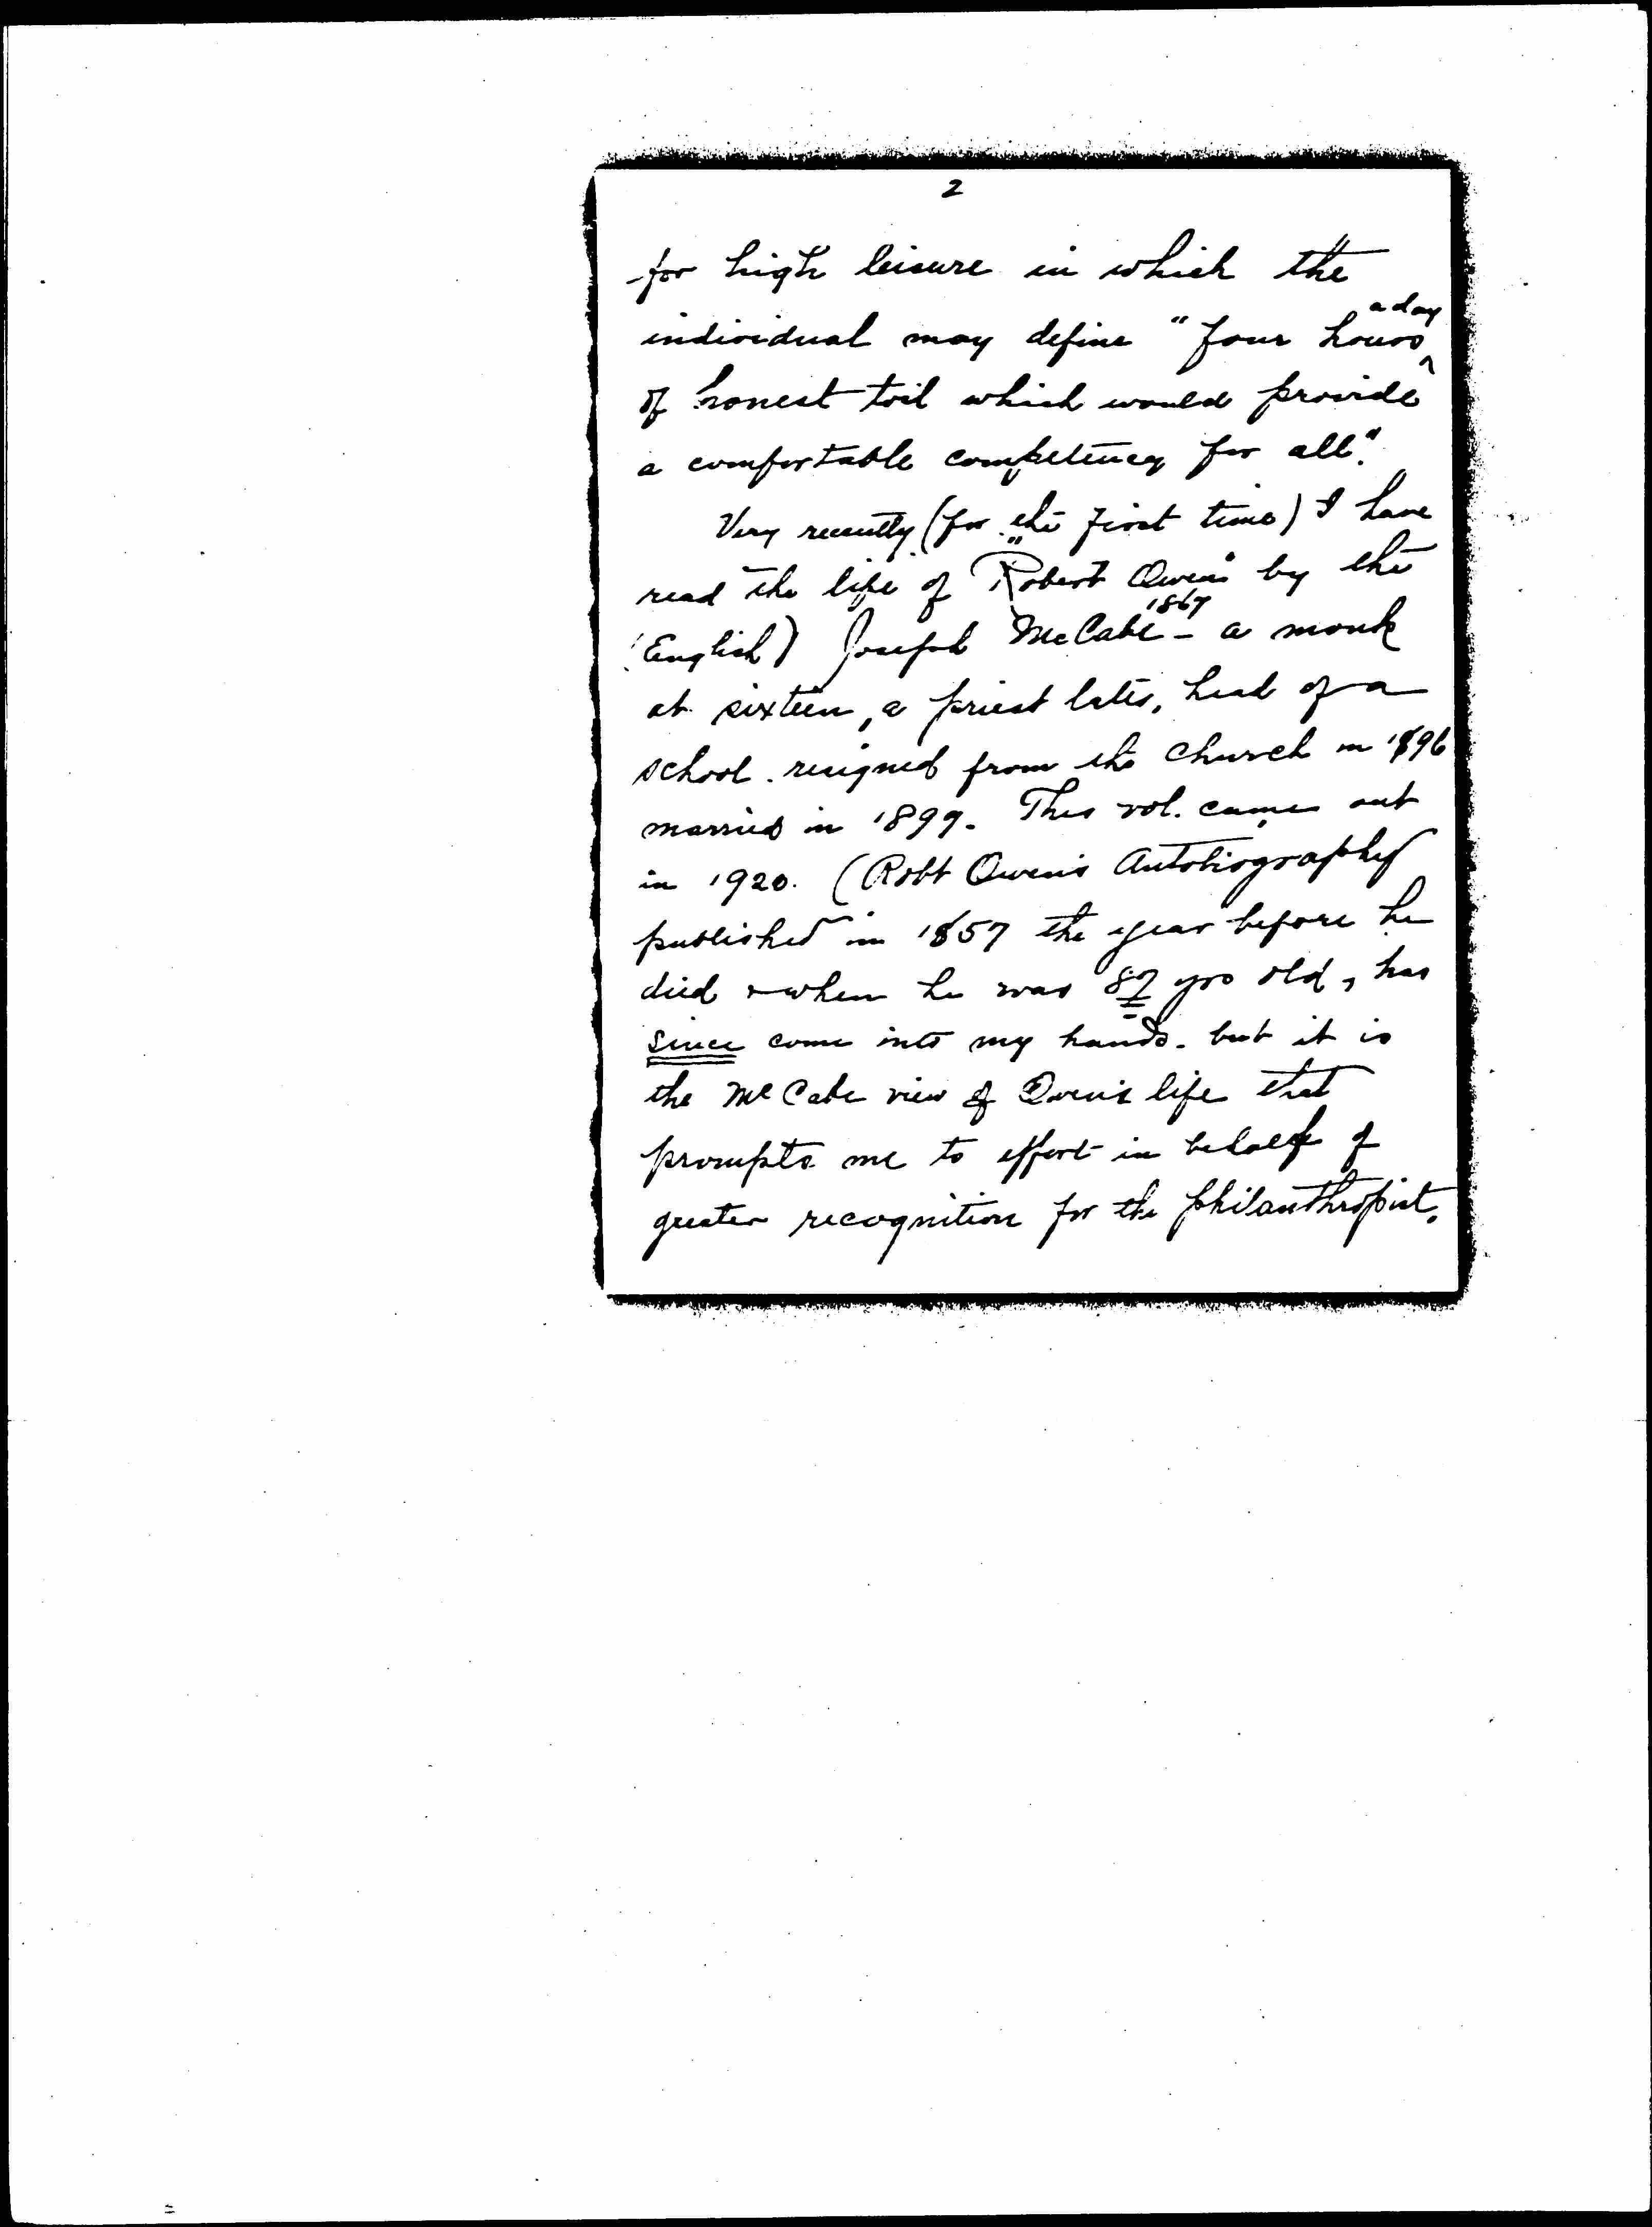 2
for high leisure in which the
individual may define "four hours a day
of honest toil which would provide
a comfortable competency for all."
Very recently (for the first time) I have
read the life of "Robert Owen" by the
(English) Joseph McCabe 1867 - a monk
at sixteen, a priest later, head of a
school. resigned from the church in 1896
married in 1899. This vol. came out
in 1920. (Robt Owen's Autobiography
published in 1857 the year before he
died & when he was 87 yrs old, has
since come into my hands. but it is
the McCabe view of Owen's life that
prompts me to effort in behalf of
greater recognition for the philanthropist.